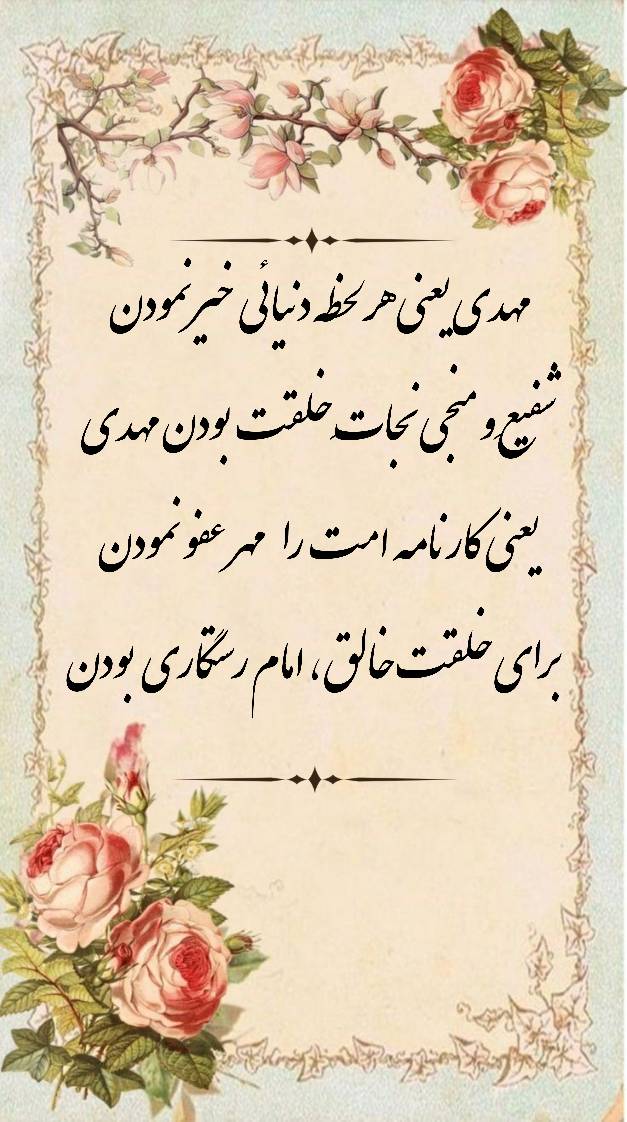 مهدی یعنی هر لحظه دنیائی خیر نمودن
شفیع و منجی نجات خلقت بودن مهدی
یعنی کارنامه امت را مهر عفو نمودن
برای خلقت خالق، امام رستگاری بودن